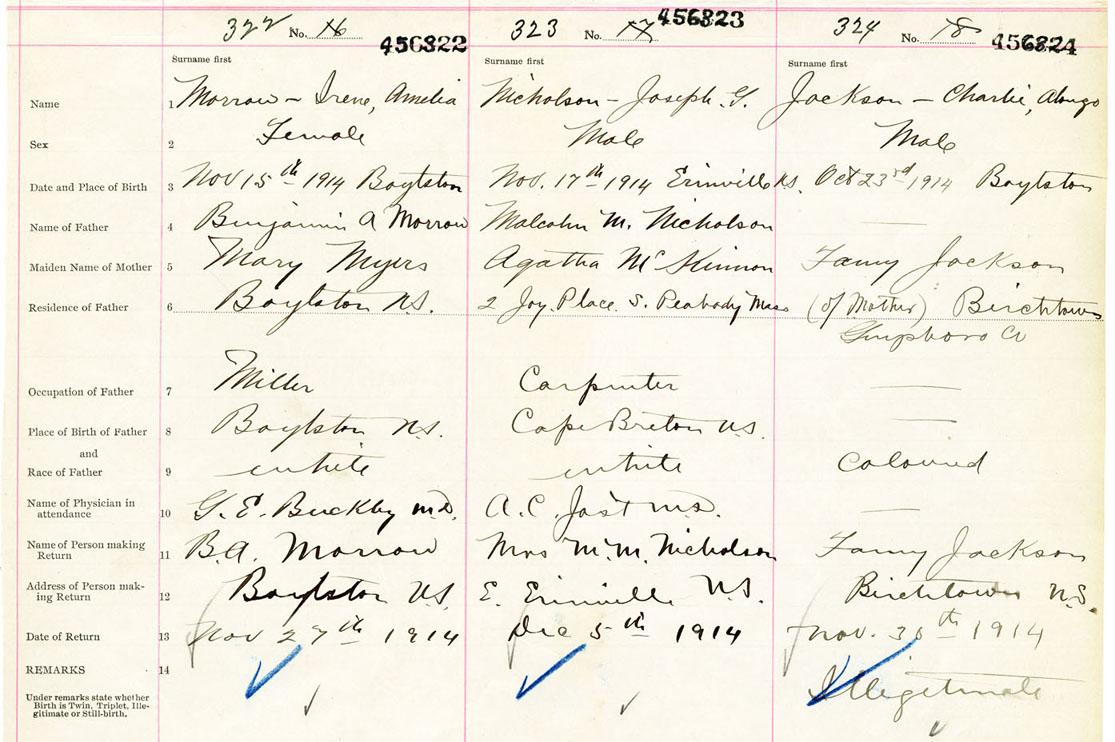 322 No. 16 456822 323 No. 17 456823 324 No. 18 456824
Surname first Surname first Surname first
Name 1 Morrow - Irene, Amelia Nicholson - Joseph. G. Jackson - Charlie, Alongo
Sex 2 Female Male Male
Date and Place of Birth 3 Nov 15th 1914 Boylston Nov. 17th 1914 Erinville N.S. Oct 23rd 1914 Boylston
Name of Father 4 Benjamin A Morrow Malcolm M. Nicholson —
Maiden Name of Mother 5 Mary Myers Agatha McKinnon Fanny Jackson
Residence of Father 6 Boylston N.S. 2 Joy. Place. S. Peabody Mass (of Mother) Birchtown
Guysboro Co
Occupation of Father 7 Miller Carpenter —
Place of Birth of Father 8 Boylston N.S. Cape Breton N.S. —
and
Race of Father 9 white white coloured
Name of Physician in
attendance 10 G. E. Buckley M.D. A. C. Jost M.D. —
Name of Person making
Return 11 B. A. Morrow Mrs M. M. Nicholson Fanny Jackson
Address of Person mak-
ing Return 12 Boylston N.S. E. Erinville N.S. Birchtown N.S.
Date of Return 13 Nov 27th 1914 Dec 5th 1914 Nov. 30th 1914
REMARKS 14 Illegitimate
Under remarks state whether
Birth is Twin, Triplet, Ille-
gitimate or Still-birth.